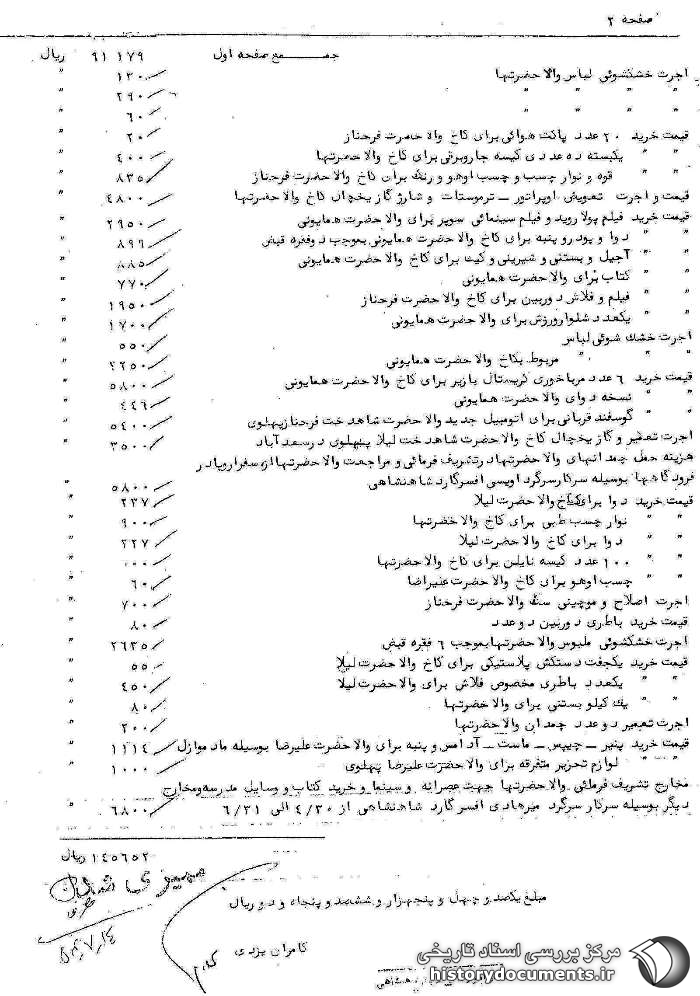 صفحه ۲
جمع صفحه اول ۹۱۱۷۹ ریال
اجرت خشکشوئی لباس والاحضرتها ۱۳۰/ "
" " " " ۲۹۰/ "
" " " " ۶۰/ "
قیمت خرید ۲۰ عدد پاکت هوائی برای کاخ والاحضرت فرحناز ۲۰/ "
" " یکبسته ده عددی کیسه جاروبرقی برای کاخ والاحضرتها ۴۰۰/ "
" " قوه و نوار چسب و چسب اوهو و رنگ برای کاخ والاحضرت فرحناز ۸۳۵/ "
قیمت و اجرت تعویض اوپراتور ـ ترموستات و شارژ گاز یخچال کاخ والاحضرتها ۴۸۰۰/ "
قیمت خرید فیلم پولاروید و فیلم سینمائی سوپر برای والاحضرت همایونی ۲۹۵۰/ "
" " دوا و پودر و پنبه برای کاخ والاحضرت همایونی بموجب دوفقره قبض ۸۹۹/ "
" " آجیل و بستنی و شیرینی و کیت برای کاخ والاحضرت همایونی ۸۸۵/ "
" " کتاب برای والاحضرت همایونی ۷۷۰/ "
" " فیلم و فلاش دوربین برای کاخ والاحضرت فرحناز ۱۹۵۰/ "
" " یکعدد شلوار ورزش برای والاحضرت همایونی ۱۷۰۰/ "
اجرت خشک شوئی لباس ۵۵۰/ "
" " " مربوط بکاخ والاحضرت همایونی ۲۲۵۰/ "
قیمت خرید ۶ عدد مرباخوری کریستال بازیر برای کاخ والاحضرت همایونی ۵۸۰۰/ "
" " نسخه دوای والاحضرت همایونی ۴۴۶/ "
" " گوسفند قربانی برای اتومبیل جدید والاحضرت شاهدخت فرحناز پهلوی ۵۴۰۰/ "
اجرت تعمیر و گاز یخچال کاخ والاحضرت شاهدخت لیلا پهلوی در سعدآباد ۳۵۰۰/ "
هزینه حمل چمدانهای والاحضرتها در تشریف فرمائی و مراجعت والاحضرتها از سفر اروپا در
فرودگاهها بوسیله سرکار سرگرد اویسی افسر گارد شاهنشاهی ۵۸۰۰/ "
قیمت خرید دوا برای کاخ والاحضرت لیلا ۲۳۷/ "
" " نوار چسب طبی برای کاخ والاحضرتها ۹۰۰/ "
" " دوا برای کاخ والاحضرت لیلا ۲۲۷/ "
" " ۱۰۰ عدد کیسه نایلن برای کاخ والاحضرتها "
" " چسب اوهو برای کاخ والاحضرت علیرضا ۶۰/ "
اجرت اصلاح و موچینی سگ والاحضرت فرحناز ۷۰۰/ "
قیمت خرید باطری دوربین دوعدد ۸۰/ "
اجرت خشکشوئی ملبوس والاحضرتها بموجب ۶ فقره قبض ۲۶۳۵/ "
قیمت خرید یکجفت دستکش پلاستیکی برای کاخ والاحضرت لیلا ۵۵/ "
" " یکعدد باطری مخصوص فلاش برای والاحضرت لیلا ۴۵۰/ "
" " یک کیلو بستنی برای والاحضرتها ۸۰/ "
اجرت تعمیر دوعدد چمدان والاحضرتها ۲۰۰/ "
قیمت خرید پنیر ـ چیپس ـ ماست ـ آدامس و پنبه برای والاحضرت علیرضا بوسیله مادموازل ۱۱۱۴/ "
" " لوازم تحریر متفرقه برای والاحضرت علیرضا پهلوی ۱۰۰۰/ "
مخارج تشریف فرمائی والاحضرتها جهت عصرانه و سینما و خرید کتاب و وسایل مدرسه و مخارج
دیگر بوسیله سرکار سرگرد میرهادی افسر گارد شاهنشاهی از ۴/۳۰ الی ۶/۳۱ ۶۸۰۰/ "
۱۴۵۶۵۲ ریال
مبلغ یکصد و چهل و پنجهزار و ششصد و پنجاه و دو ریال
کامران یزدی
مرکز بررسی اسناد تاریخی
historydocuments.ir